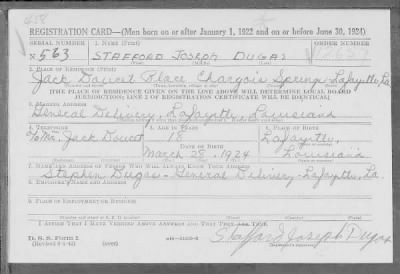 REGISTRATION CARD—(Men born on or after January 1, 1922 and on or before June 30, 1924)
SERIAL NUMBER 1. NAME (Print) ORDER NUMBER
N 563 STAFFORD JOSEPH DUGAS
2. PLACE OF RESIDENCE (Print)
Jack Doucet Place Chargois Springs Lafayette, La.
[THE PLACE OF RESIDENCE GIVEN ON THE LINE ABOVE WILL DETERMINE LOCAL BOARD
JURISDICTION; LINE 2 OF REGISTRATION CERTIFICATE WILL BE IDENTICAL]
3. MAILING ADDRESS
General Delivery, Lafayette, Louisiana
4. TELEPHONE 5. AGE IN YEARS 6. PLACE OF BIRTH
Mr. Jack Doucet 18 Lafayette,
DATE OF BIRTH
March 25, 1924 Louisiana
7. NAME AND ADDRESS OF PERSON WHO WILL ALWAYS KNOW YOUR ADDRESS
Stephen Dugas - General Delivery - Lafayette, La.
8. EMPLOYER'S NAME AND ADDRESS
9. PLACE OF EMPLOYMENT OR BUSINESS
I AFFIRM THAT I HAVE VERIFIED ABOVE ANSWERS AND THAT THEY ARE TRUE.
D. S. S. Form 1 (over)
Stafford Joseph Dugas